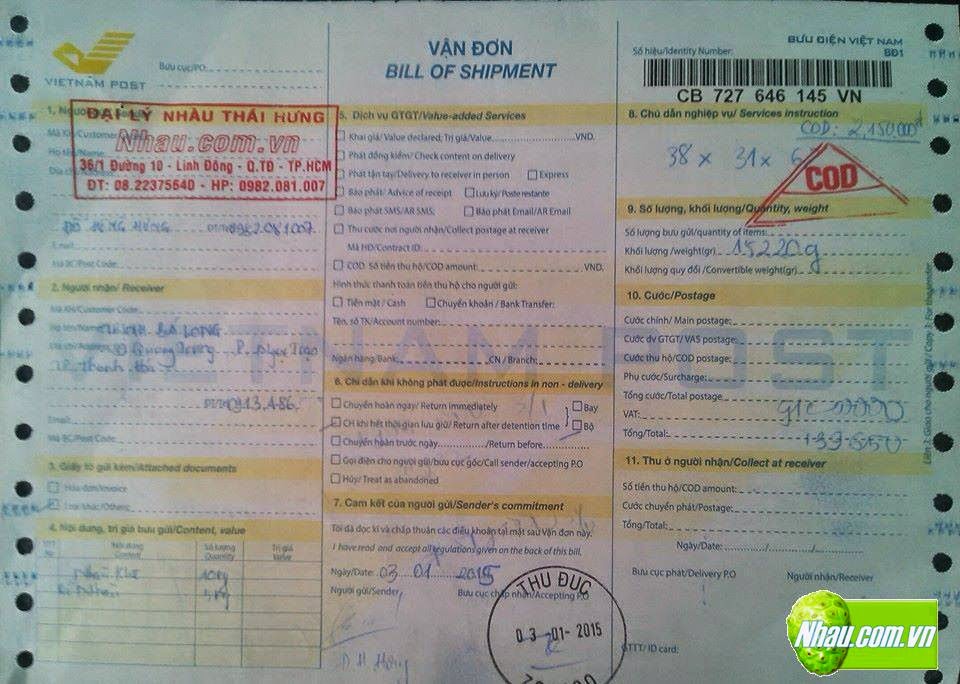 VIETNAM POST
Bưu cục/P.O:
VẬN ĐƠN
BILL OF SHIPMENT
BƯU ĐIỆN VIỆT NAM
Số hiệu/Identity Number:
BĐ1
CB 727 646 145 VN
ĐẠI LÝ NHÀU THÁI HƯNG
Nhau.com.vn
36/1 Đường 10 - Linh Đông - Q.TĐ - TP.HCM
ĐT: 08.22375640 - HP: 0982.081.007
Mã BC/Post Code:
2. Người nhận/ Receiver
Mã KH/Customer Code:
BÁ LONG
TP Thanh Hóa
0913.486.
Email:
Mã BC/Post Code:
3. Giấy tờ gửi kèm/Attached documents
Hóa đơn/Invoice
Loại khác/Others:
4. Nội dung, trị giá bưu gửi/Content, value
Nội dung
Content
Số lượng
Quantity
Trị giá
Value
5. Dịch vụ GTGT/Value-added Services
Khai giá/ Value declared; Trị giá/Value VND.
Phát đồng kiểm/ Check content on delivery
Phát tận tay/Delivery to receiver in person Express
Báo phát/ Advice of receipt Lưu ký/ Poste restante
Báo phát SMS/AR SMS; Báo phát Email/AR Email
Thu cước nơi người nhận/Collect postage at receiver
Mã HĐ/Contract ID:
COD. Số tiền thu hộ/COD amount: VND.
Hình thức thanh toán tiền thu hộ cho người gửi:
Tiền mặt / Cash Chuyển khoản / Bank Transfer:
Tên, số TK/Account number:
Ngân hàng/Bank: CN / Branch:
6. Chỉ dẫn khi không phát được/Instructions in non - delivery
Chuyển hoàn ngay/ Return immediately Bay
CH khi hết thời gian lưu giữ/ Return after detention time Bộ
Chuyển hoàn trước ngày /Return before
Gọi điện cho người gửi/bưu cục gốc/Call sender/accepting P.O
Hủy/ Treat as abandoned
7. Cam kết của người gửi/Sender's commitment
Tôi đã đọc kĩ và chấp thuận các điều khoản tại mặt sau Vận đơn này.
I have read and accept all regulations given on the back of this bill.
Ngày/Date: 03 01 2015
Người gửi/Sender
Bưu cục chấp nhận/Accepting P.O
THU ĐUC
03-01-2015
8. Chỉ dẫn nghiệp vụ/ Services instruction
COD: 2,150,000đ
38 x 31 x
COD
9. Số lượng, khối lượng/Quantity, weight
Số lượng bưu gửi/quantity of items:
Khối lượng/weight(gr) 15220g
Khối lượng quy đổi /Convertible weight(gr)
10. Cước/Postage
Cước chính/ Main postage:
Cước dv GTGT/ VAS postage:
Cước thu hộ/COD postage:
Phụ cước/Surcharge:
Tổng cước/Total postage
VAT:
Tổng/Total:
11. Thu ở người nhận/Collect at receiver
Số tiền thu hộ/COD amount:
Cước chuyển phát/Postage:
Tổng/Total:
Ngày/Date:
Bưu cục phát/Delivery P.O Người nhận/Receiver
GTTT/ ID card:
Nhau.com.vn